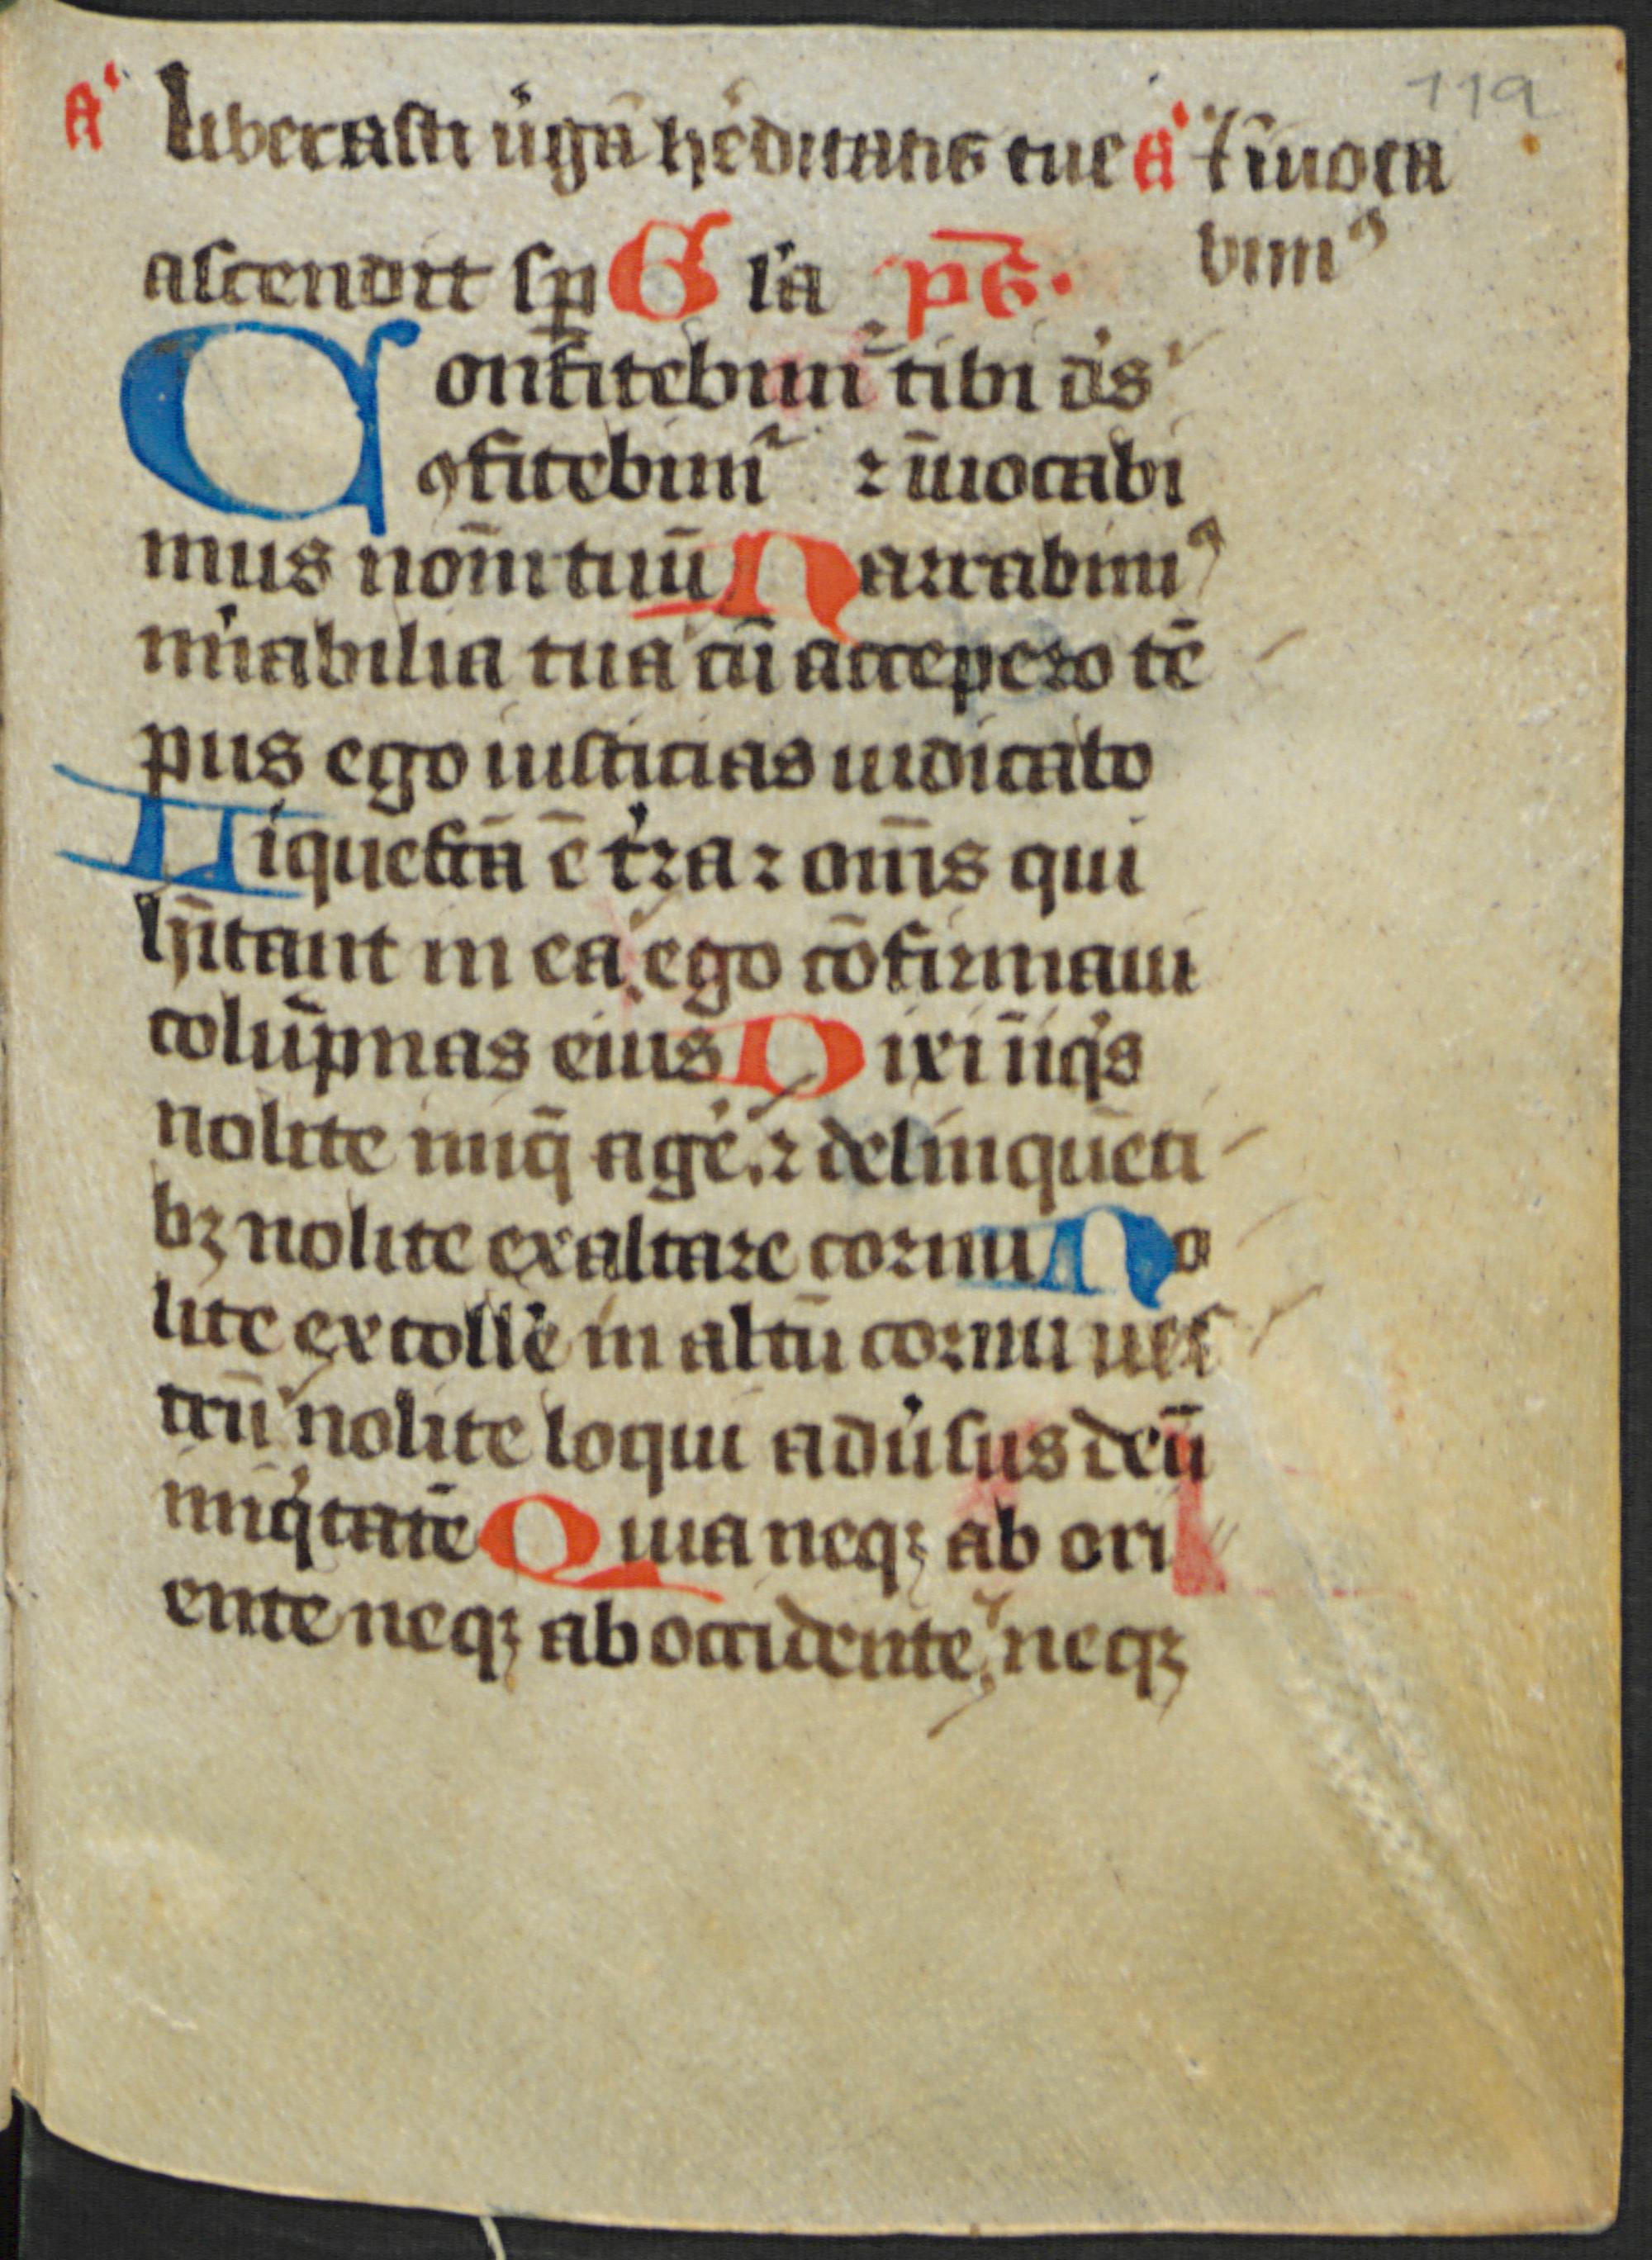 119
A' liberasti u̾gā he̾ditatis tue A' ⁊ īuoca
bimꝰ
ascendit sꝑ Gl'a ps̄.
Confitebim̾ tibi d's
ꝯfitebim̾ ⁊ īuocabi
mus nom̄ tuū Narrabimꝰ
mi̾abilia tua cū accepero tē
pus ego iusticias iudicabo
Liquefcā ē t'ra ⁊ om̄s qui
hi̅tant in ea ego cōfirmaui
colūpnas eius Dixi īiq's
nolite iniq̄ age̾ ⁊ delinquēti
bꝫ nolite exaltare cornu No
lite extolle̾ in altū cornu ues
trū nolite loqui adu̾sus deū
iniq'tatē Quia neqꝫ ab ori
ente neqꝫ ab occidente neqꝫ